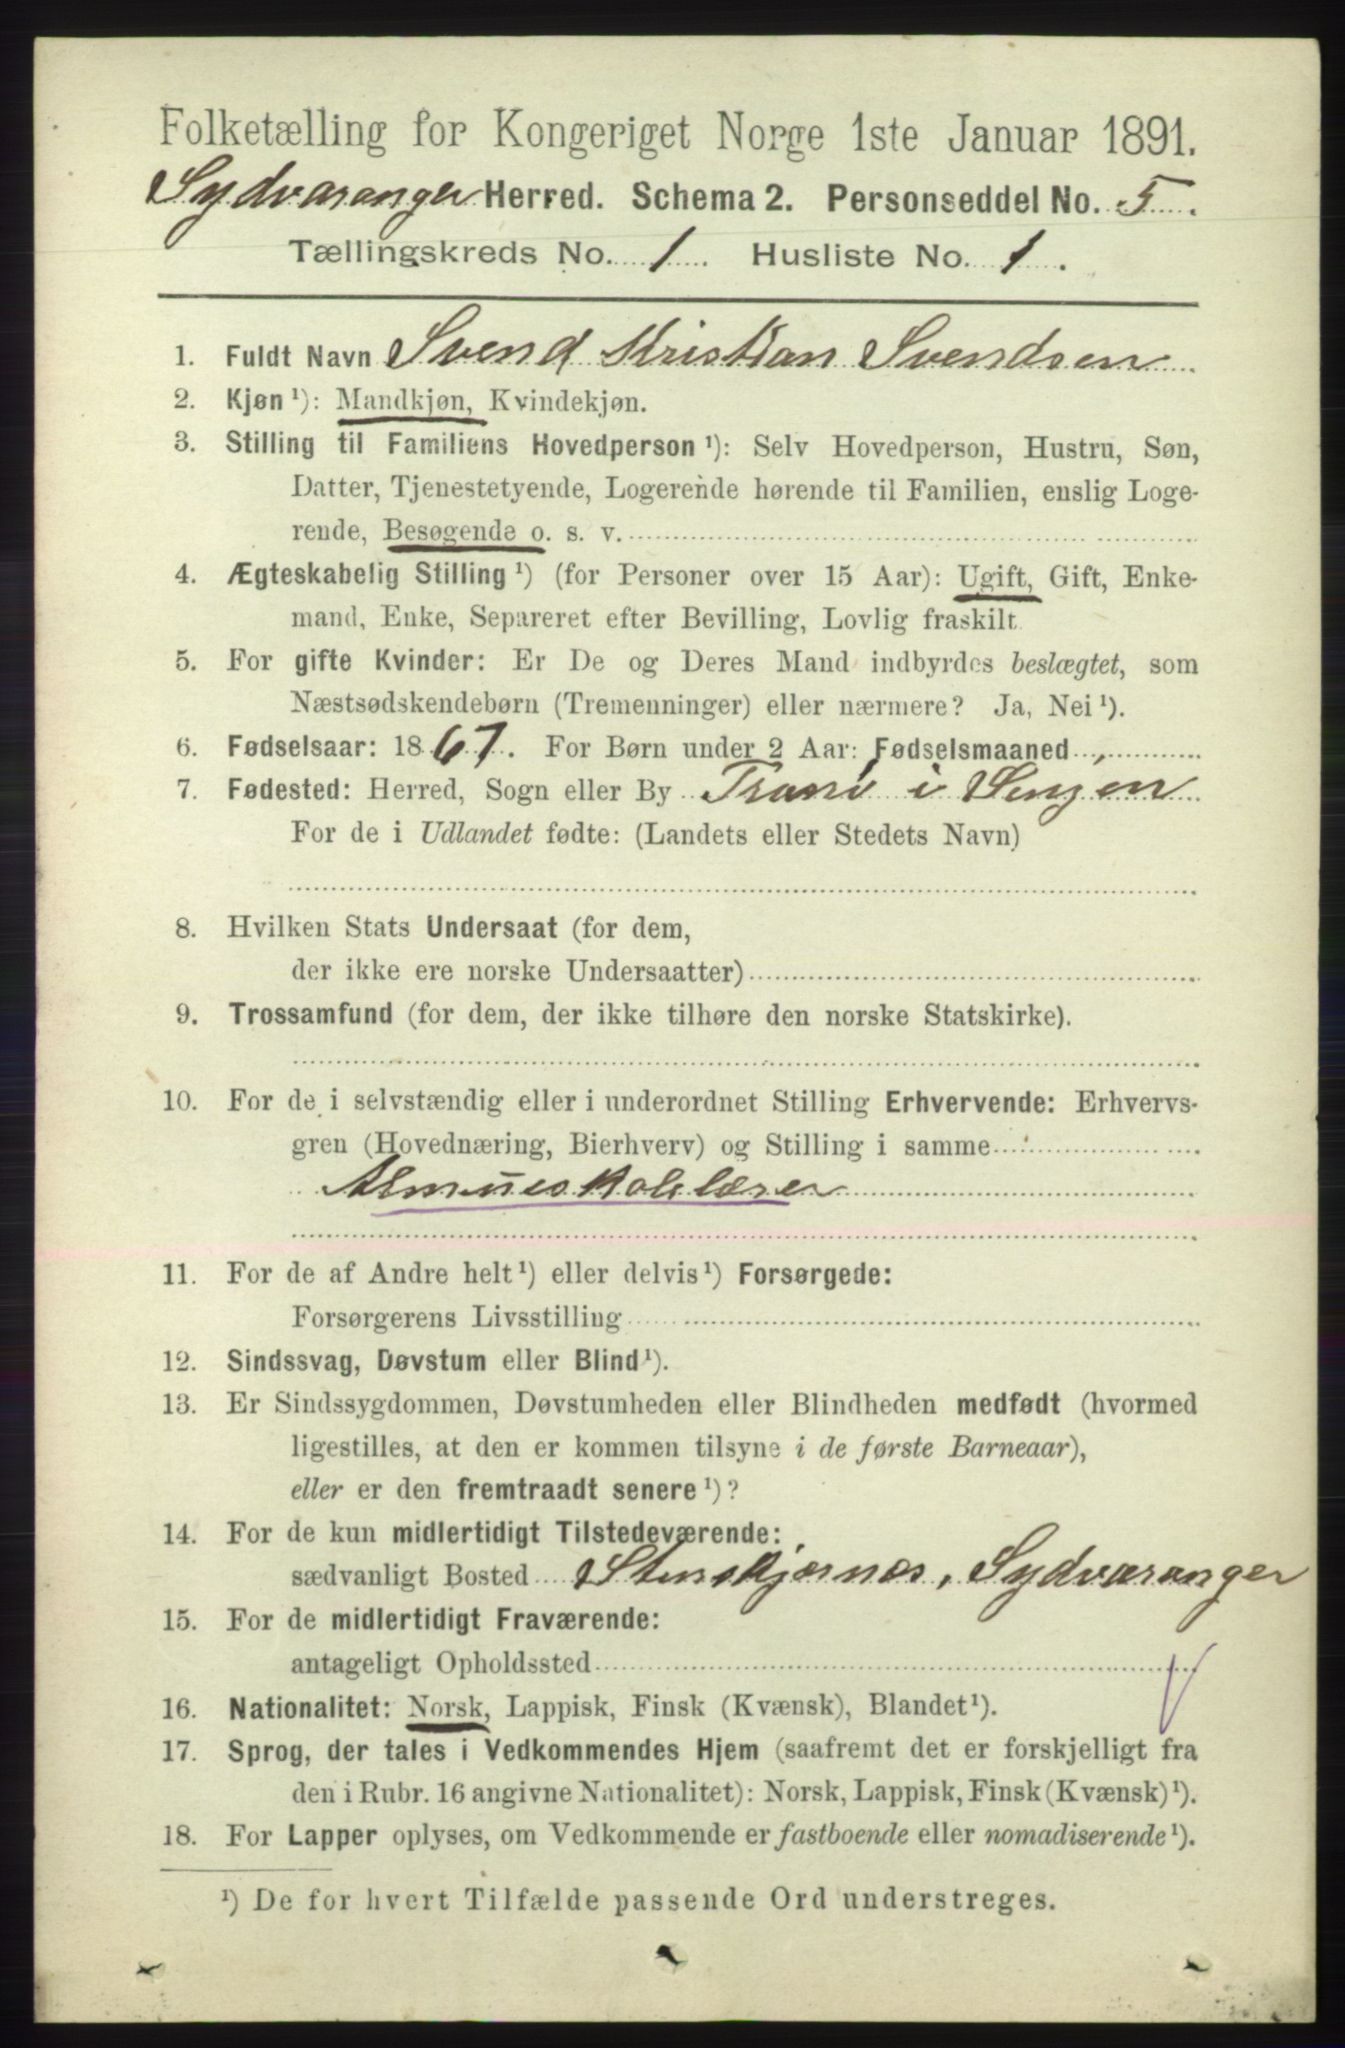 Folketælling for Kongeriget Norge 1ste Januar 1891.
Sydvaranger Herred. Schema 2. Personseddel No. 5.
Tællingskreds No. 1. Husliste No. 1.
1. Fuldt Navn Svend Kristian Svendsen
2. Kjøn ¹): Mandkjøn, Kvindekjøn.
3. Stilling til Familiens Hovedperson ¹): Selv Hovedperson, Hustru, Søn,
Datter, Tjenestetyende, Logerende hørende til Familien, enslig Loge-
rende, Besøgende o. s. v.
4. Ægteskabelig Stilling ¹) (for Personer over 15 Aar): Ugift, Gift, Enke-
mand, Enke, Separeret efter Bevilling, Lovlig fraskilt
5. For gifte Kvinder: Er De og Deres Mand indbyrdes beslægtet, som
Næstsødskendebørn (Tremenninger) eller nærmere? Ja, Nei ¹).
6. Fødselsaar: 1867. For Børn under 2 Aar: Fødselsmaaned
7. Fødested: Herred, Sogn eller By Tranø i Senjen
For de i Udlandet fødte: (Landets eller Stedets Navn)
8. Hvilken Stats Undersaat (for dem,
der ikke ere norske Undersaatter)
9. Trossamfund (for dem, der ikke tilhøre den norske Statskirke).
10. For de i selvstændig eller i underordnet Stilling Erhvervende: Erhvervs-
gren (Hovednæring, Bierhverv) og Stilling i samme
Almueskolelærer
11. For de af Andre helt ¹) eller delvis ¹) Forsørgede:
Forsørgerens Livsstilling
12. Sindssvag, Døvstum eller Blind ¹).
13. Er Sindssygdommen, Døvstumheden eller Blindheden medfødt (hvormed
ligestilles, at den er kommen tilsyne i de første Barneaar),
eller er den fremtraadt senere ¹)?
14. For de kun midlertidigt Tilstedeværende:
sædvanligt Bosted Stenskjærnæs, Sydvaranger
15. For de midlertidigt Fraværende:
antageligt Opholdssted
16. Nationalitet: Norsk, Lappisk, Finsk (Kvænsk), Blandet ¹).
17. Sprog, der tales i Vedkommendes Hjem (saafremt det er forskjelligt fra
den i Rubr. 16 angivne Nationalitet): Norsk, Lappisk, Finsk (Kvænsk) ¹).
18. For Lapper oplyses, om Vedkommende er fastboende eller nomadiserende ¹).
¹) De for hvert Tilfælde passende Ord understreges.